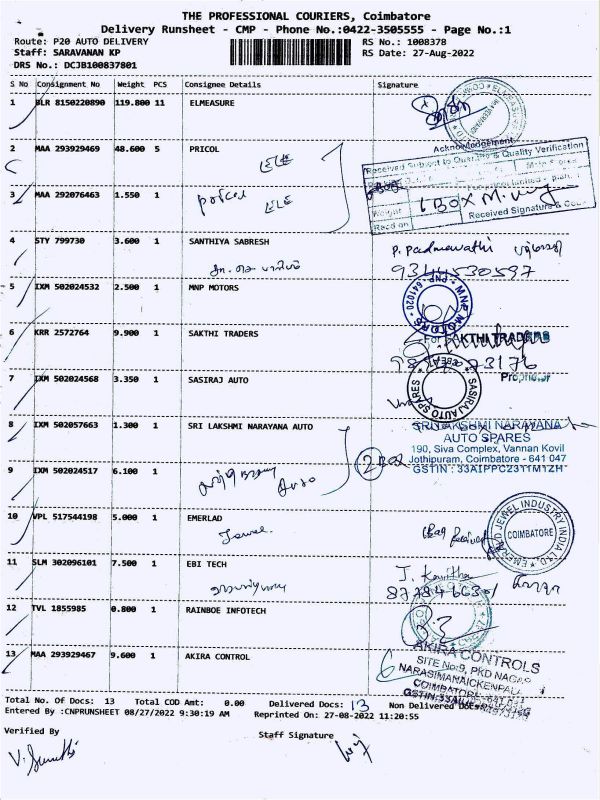 THE PROFESSIONAL COURIERS, Coimbatore
Delivery Runsheet - CMP - Phone No.:0422-3505555 - Page No.:1
Route: P20 AUTO DELIVERY RS No.: 1008378
Staff: SARAVANAN KP RS Date: 27-Aug-2022
DRS No.: DCJB100837801
S No Consignment No Weight Pcs Consignee Details Signature
1 BLR 8150220890 119.800 11 ELMEASURE
Acknowledgement
2 MAA 293929469 48.600 5 PRICOL
ELE
Received Subject to Quantity & Quality Verification
3 MAA 292076463 1.550 1
pricol ELE
1 BOX
Weight
Recd on Received Signature &
4 STY 799730 3.600 1 SANTHIYA SABRESH P. Padmavathi
9344530597
5 IXM 502024532 2.500 1 MNP MOTORS
MNP MOTORS
CNP - 641020
6 KRR 2572764 9.900 1 SAKTHI TRADERS For SAKTHI TRADERS
Proprietor
7 IXM 502024568 3.350 1 SASIRAJ AUTO
SASIRAJ AUTO SPARES
8 IXM 502057663 1.300 1 SRI LAKSHMI NARAYANA AUTO SRI LAKSHMI NARAYANA
AUTO SPARES
190, Siva Complex, Vannan Kovil
Jothipuram, Coimbatore - 641 047
9 IXM 502024517 6.100 1 2 Box GSTIN : 33AIPPC2311M1ZH
10 VPL 517544198 5.000 1 EMERLAD
Jewel
EMERALD JEWEL INDUSTRY INDIA LTD.
COIMBATORE
11 SLM 302096101 7.500 1 EBI TECH
J. Kavitha
12 TVL 1855985 0.800 1 RAINBOE INFOTECH
13 MAA 293929467 9.600 1 AKIRA CONTROL AKIRA CONTROLS
SITE No:9, PKD NAGAR
NARASIMANAICKENPALA
COIMBATORE - 641 031
Total No. of Docs: 13 Total COD Amt: 0.00 Delivered Docs: 13 Non Delivered Docs:
Entered By :CNPRUNSHEET 08/27/2022 9:30:19 AM Reprinted On: 27-08-2022 11:20:55
Verified By Staff Signature